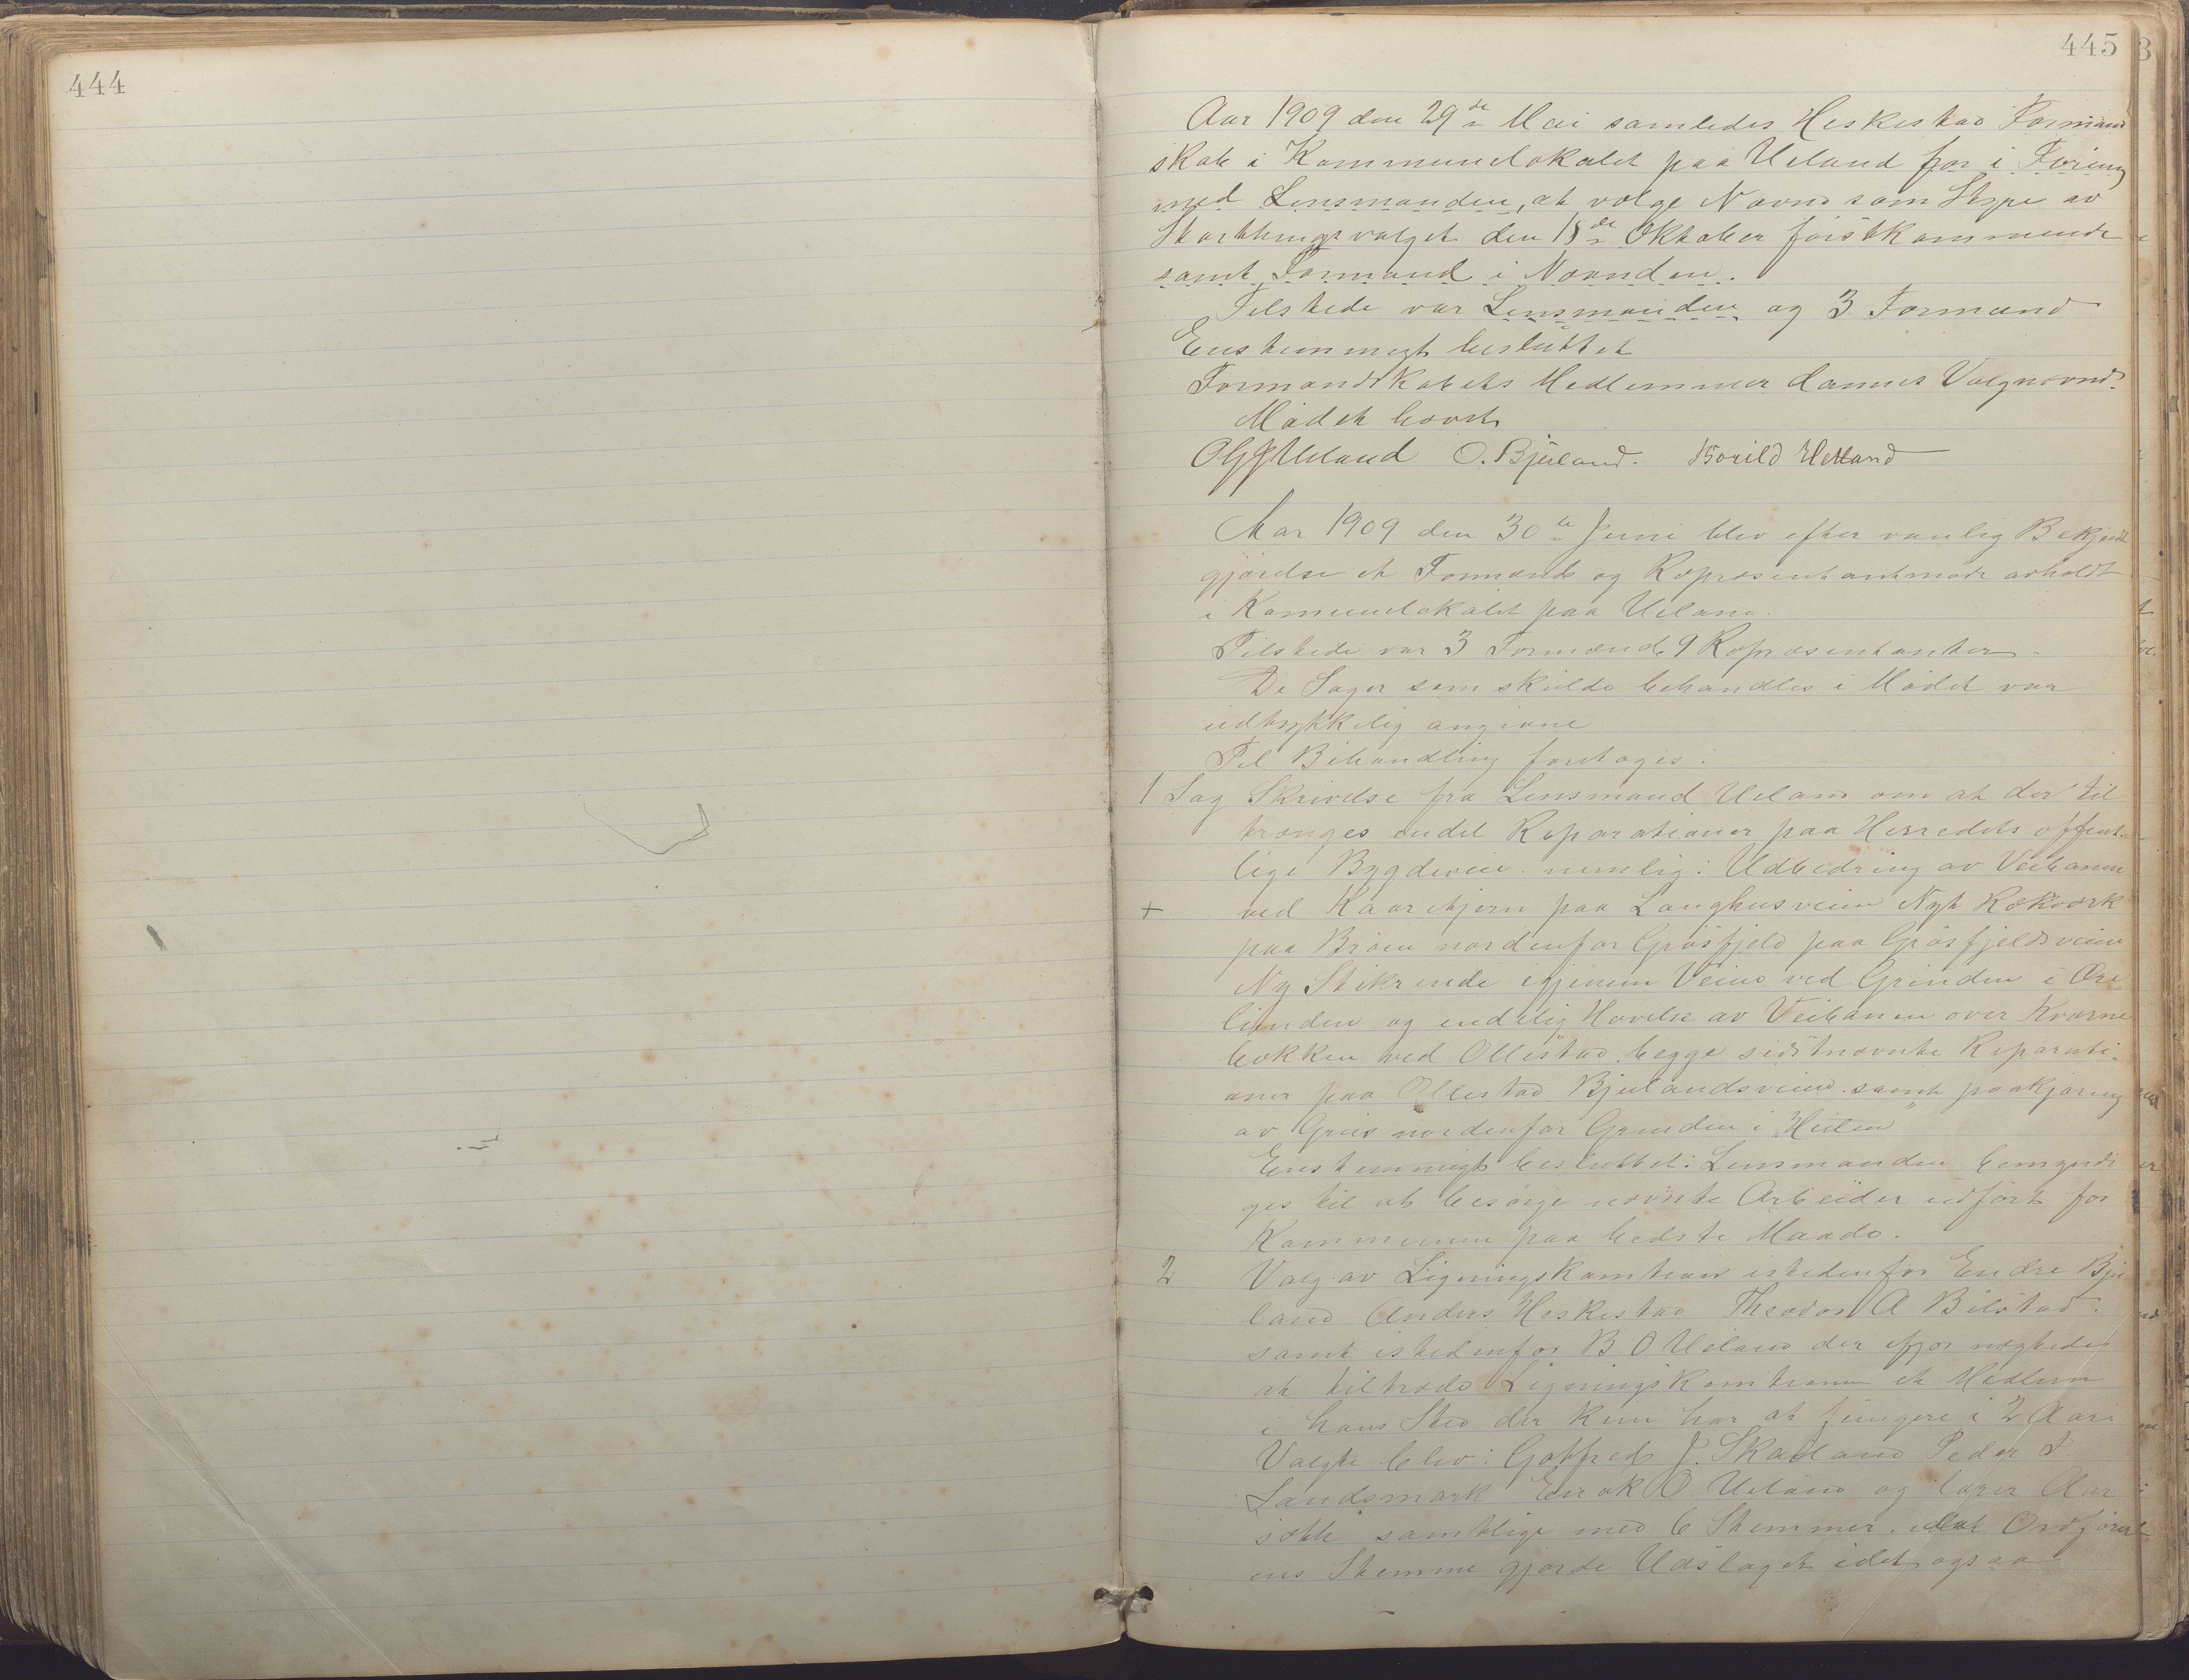 444
445
Aar 1909 den 29de Mai samledes Heskestad Formand
skab i Kommunelokalet paa Ueland for i Foring
med Lensmanden, at vælge Nævnd som Styre av
Storthingsvalget den 18de Oktober förstkommende
samt Formand i Nævnden.
Tilstede var Lensmanden og 3 Formænd
Enstemmigt besluttet
Formandskabets Medlemmer dannes Valgnævnd.
Mödet hævet
O. Bjuland. Torild Hetland
Aar 1909 den 30te Juni blev efter vanlig Bekjendt
gjörelse et Formænds og Repræsentantmöde avholdt
i Kommunelokalet paa Ueland.
Tilstede var 3 Formænd 9 Repræsentanter.
De Sager som skulde behandles i Mödet var
udtrykkelig angivne
Til Behandling foretoges:
1 Sag Skrivelse fra Lensmand Ueland om at der til
trænges endel Reparationer paa Herredets offent-
lige Bygdeveie nemlig: Udbedring av Veibanen
+ ved Kaarekjern paa Langhusveien Nyt Rækværk
paa Broen nordenfor Gräsfjeld paa Gräsfjeldsveien
Ny Stikrende igjenem Veien ved Grinden i Ore
lunden og endelig Hævelse av Veibanen over Kværne
bækken ved Ollestad. begge sidstnævnte Reparati-
oner paa Ollestad Bjulandsveien samt paakjöring
av Grus nordenfor Grinden i "Hiden"
Enstemmigt besluttet: Lensmanden bemyndi
ges til at besörge nævnte Arbeider udfört for
Kommunen paa bedste Maade.
2 Valg av Ligningskomtroer istedenfor Endre Bju
land Anders Heskestad Theodor A Bilstad.
samt istedenfor B O Ueland der ifjor nægtedes
at tiltræde Ligningskomtroen et Medlem
i hans Sted der kun har at fungere i 2 Aar.
Valgte blev: Gotfred J. Skadland Peder T
Landsmark Eirik O. Ueland og lærer Aar
sæth samtlige med 6 Stemmer. idet Ordförer
ens Stemme gjorde Udslaget idet ogsaa